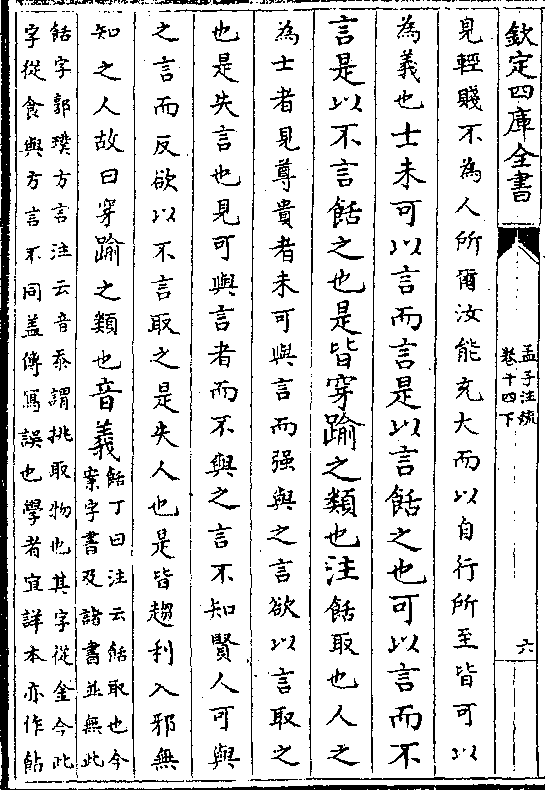 欽定四庫全書
孟子注疏
卷十四下
六
見輕賤不為人所爾汝能充大而以自行所至皆可以
為義也士未可以言而言是以言餂之也可以言而不
言是以不言餂之也是皆穿踰之類也注餂取也人之
為士者見尊貴者未可與言而强與之言欲以言取之
也是失言也見可與言者而不與之言不知賢人可與
之言而反欲以不言取之是失人也是皆趨利入邪無
知之人故曰穿踰之類也音義餂丁曰注云餂取也今
案字書及諸書並無此
餂字郭璞方言注云音忝謂挑取物也其字從金今此
字從食與方言不同盖傳寫誤也學者宜詳本亦作鉆